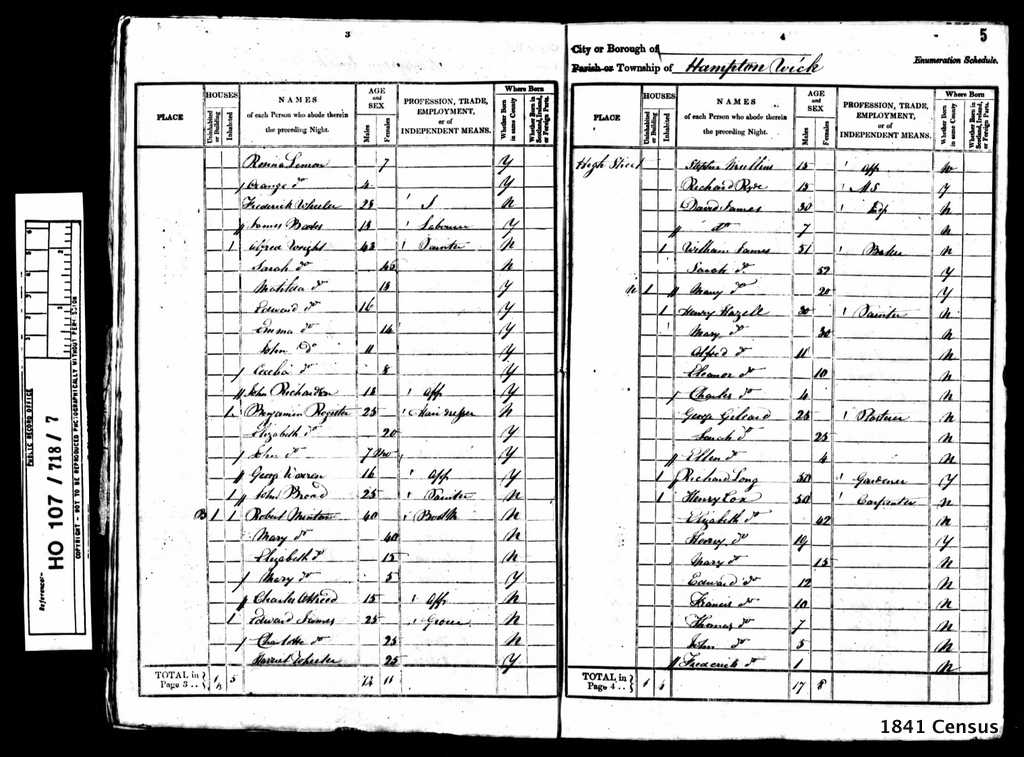 3
HOUSES
Where Born
PLACE
Uninhabited or Building
Inhabited
NAMES
of each Person who abode therein
the preceding Night.
AGE
and
SEX
Males
Females
PROFESSION, TRADE,
EMPLOYMENT,
or of
INDEPENDENT MEANS.
Whether Born in same County
Whether Born in Scotland, Ireland, or Foreign Parts.
Lemon 7 Y
George do 4 Y
Frederick Wheeler 25 J N
James 15 Labourer Y
1 Alfred Wright Painter N
Sarah do 45 N
Matilda do 15 Y
Edward do 16 Y
Emma do 14 Y
John do 11 Y
Cecelia do 8 Y
John Richardson 15 App Y
1 Benjamin Register 25 Hair dresser N
Elizabeth do 20 Y
John do 7 Mo Y
George Warren 16 App Y
1 John Broad 25 Painter N
B 1 1 Robert 40 N
Mary do 40 N
Elizabeth do 15 N
Mary do 5 Y
Charles 15 App N
1 Edward James 25 Grocer N
Charlotte do 25 N
Harriet Wheeler 25 Y
TOTAL in
Page 3 .. 1 5 14 11
4
5
City or Borough of
Parish or Township of Hampton Wick
Enumeration Schedule.
HOUSES
Where Born
PLACE
Uninhabited or Building
Inhabited
NAMES
of each Person who abode therein
the preceding Night.
AGE
and
SEX
Males
Females
PROFESSION, TRADE,
EMPLOYMENT,
or of
INDEPENDENT MEANS.
Whether Born in same County
Whether Born in Scotland, Ireland, or Foreign Parts.
High Street Stephen Mullins 15 App N
Richard 15 M S Y
David James 30 N
do 7 N
1 William James 51 Baker N
Sarah do 52 Y
1 Mary do 20 Y
1 Henry Hazell 30 Painter N
Mary do 30 N
Alfred do 11 N
Eleanor do 10 N
Charles do 4 N
George 25 N
Sarah do 25 N
Ellen do 4 N
1 Richard Long 50 Gardener Y
1 Henry Cox 50 Carpenter N
Elizabeth do 42 N
Henry do 19 Y
Mary do 15 N
Edward do 12 N
Francis do 10 N
Thomas do 7 N
John do 5 N
Frederick do 1 N
TOTAL in
Page 4 .. 1 17 8
PUBLIC RECORD OFFICE
Reference:-
HO 107 / 718 / 7
COPYRIGHT - NOT TO BE REPRODUCED PHOTOGRAPHICALLY WITHOUT PERMISSION
1841 Census